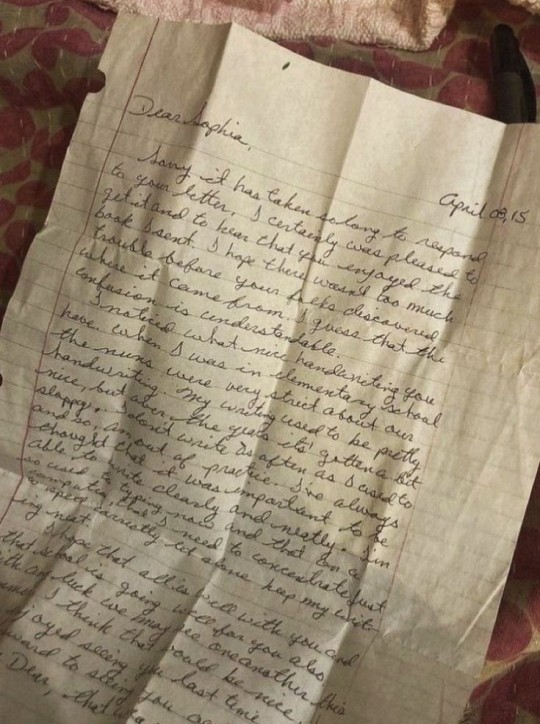 April 09, 15
Dear Sophia,
Sorry it has taken so long to respond
to your letter. I certainly was pleased to
get it and to hear that you enjoyed the
book I sent. I hope there wasn't too much
trouble before your folks discovered
where it came from. I guess that the
confusion is understandable.
I noticed what nice handwriting you
have. When I was in elementary school
the nuns were very strict about our
handwriting. My writing used to be pretty
nice, but over the years its' gotten a bit
sloppy. I don't write as often as I used to
and so, am out of practice. I've always
thought that it was important to be
able to write clearly and neatly. I'm
so used to typing now and that on a
computer, that I need to concentrate just
to spell correctly let alone keep my writ-
ing neat.
I hope that all is well with you and
that school is going well for you also.
With any luck we may see one another this
I think that would be nice.
joyed seeing you last time
ward to seeing you
Dear, that was